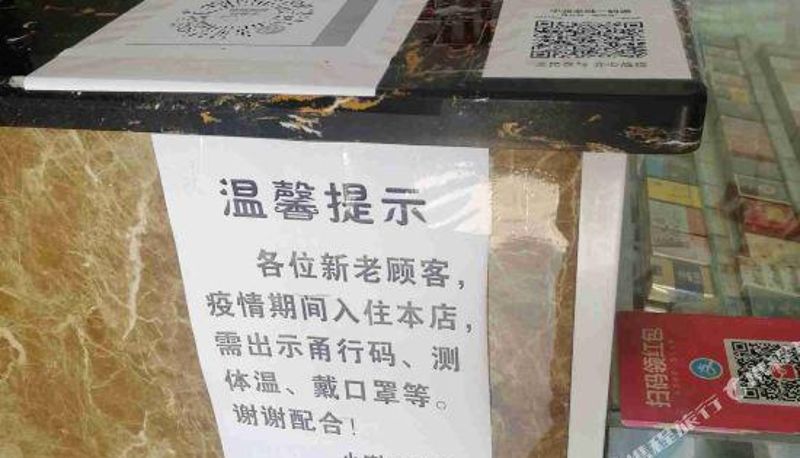 温馨提示
各位新老顾客，
疫情期间入住本店，
需出示甬行码、测
体温、戴口罩等。
谢谢配合！
扫码领红包
支
携程旅行